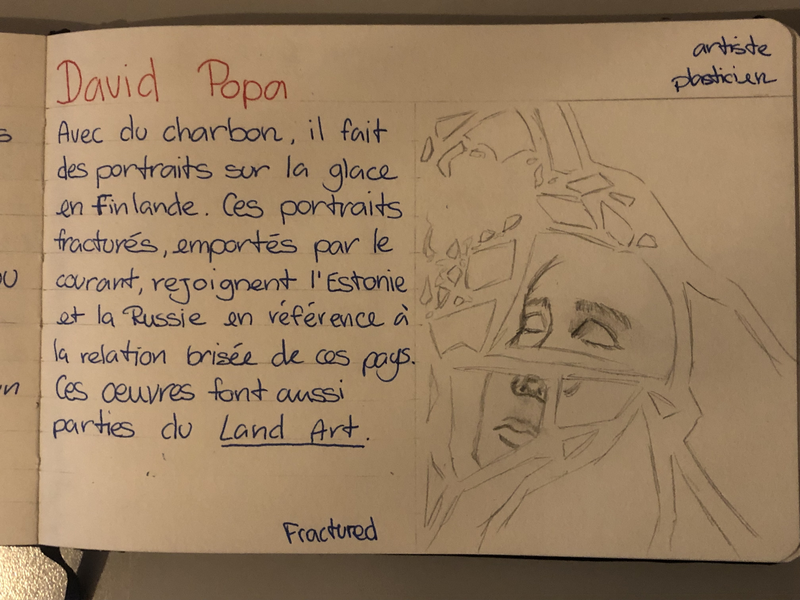 artiste
plasticien
David Popa
Avec du charbon, il fait
des portraits sur la glace
en Finlande. Ces portraits
fracturés, emportés par le
courant, rejoignent l'Estonie
et la Russie en référence à
la relation brisée de ces pays.
Ces oeuvres font aussi
parties du Land Art.
Fractured